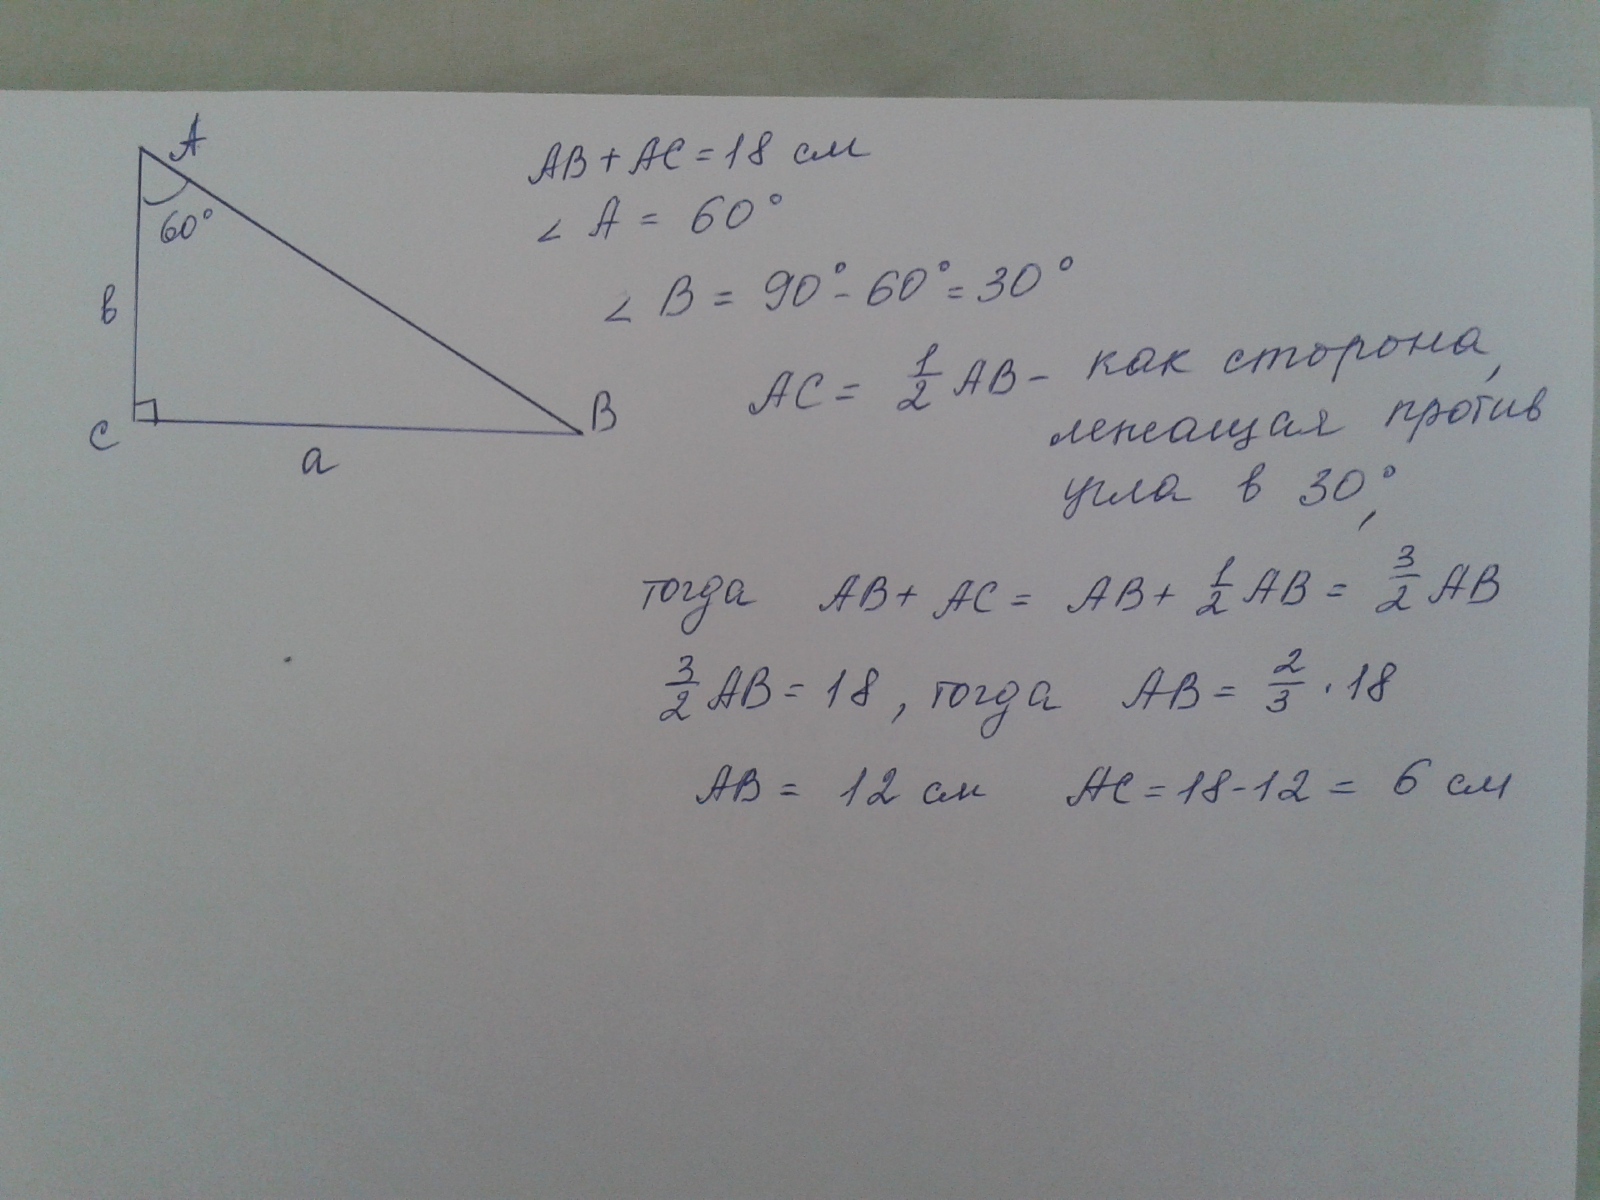 A
60°
в
C
a
B
AB + AC = 18 см
∠ A = 60°
∠ B = 90° - 60° = 30°
AC = 1/2 AB - как сторона,
лежащая против
угла в 30°,
тогда AB + AC = AB + 1/2 AB = 3/2 AB
3/2 AB = 18, тогда AB = 2/3 · 18
AB = 12 см AC = 18 - 12 = 6 см